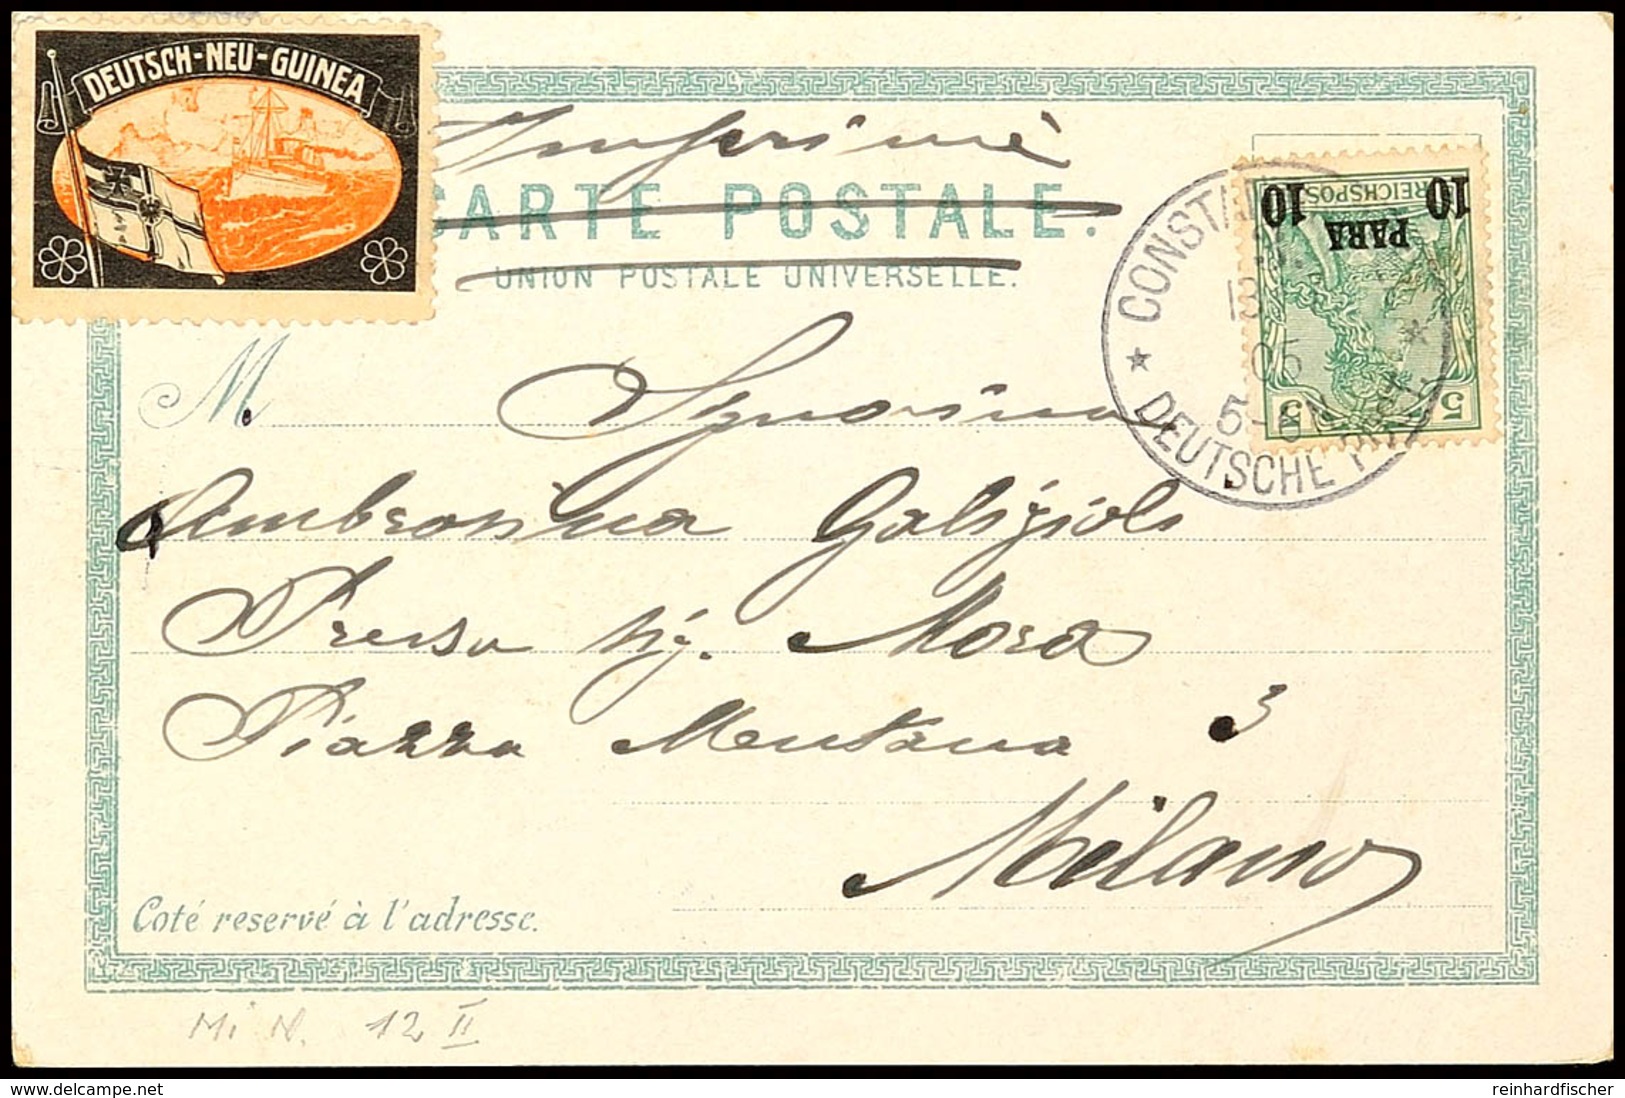 DEUTSCH-NEU-GUINEA
Imprimé
CARTE POSTALE.
UNION POSTALE UNIVERSELLE.
10 PARA 10
REICHSPOST
5 5
CONSTANTINOPEL
13
05
DEUTSCHE POST
M. Signorina
Ambrosina Galigioli
Presso Sig. Mora
Piazza Mentana 3
Milano
Coté reservé à l'adresse.
Mi N. 12 II
delcampe.net
reinhardfischer